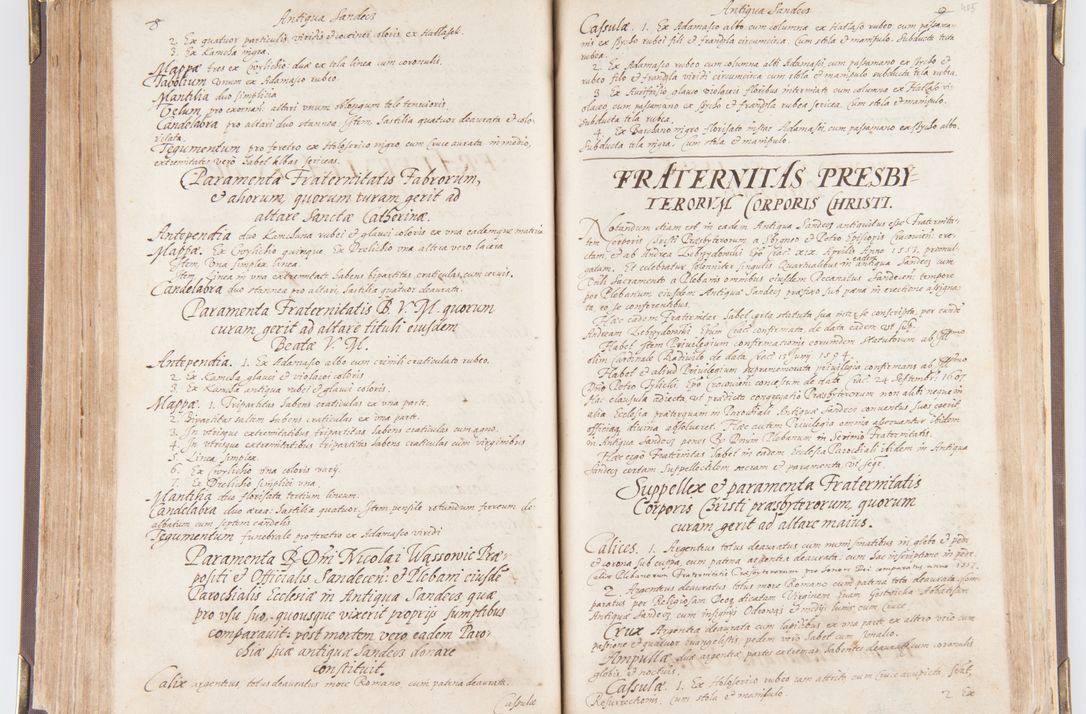 8
Antiqua Sandecs
2. Ex quatuor particulis viridis et coccinei coloris ex Hatlasek.
3. Ex Kamcha nigra.
Mappæ tres ex Cwylicho: duæ ex tela linea cum coronulis.
Tabolium unum ex Adamasco rubeo.
Mantilia duo simplicia.
Velum pro exornan: altari unum oblongum tele tenuioris.
Candelabra pro altari duo stannea. Item Hastilia quatuor deaurata et colo-
risata.
Tegumentum pro feretro ex Holoserico nigro, cum Cruce aurata in medio,
extremitates vero habet albas sericeas.
Paramenta Fraternitatis Fabrorum,
et aliorum, quorum curam gerit ad
altare Sanctæ Catherinæ.
Antependia duo Kamchana rubei et glauci coloris ex una eademque matria
Mappæ. Ex Cwylicho quinque. Ex Drelicho una altera vero lacera
Item Una simplex linea
Item Linea in una extremitate habens bipartitas craticulas, cum cervis.
Candelabra duo stannea pro altari hastilia quatuor deaurata.
Paramenta Fraternitatis B. V. M. quorum
curam gerit ad altare tituli eiusdem
Beatæ V. M.
Antependia. 1. Ex Adamasco albo cum craticulato rubeo.
2. Ex Kamcha glauci et violacei coloris
3. Ex Kamcha antiqua rubei et glauci coloris.
Mappæ. 1. Tripartitas habens craticulas ex una parte.
2. Bipartitas saltem habens craticulas ex una parte.
3. In utrisque extremitatibus tripartitas habens craticulas cum agno.
4. In utrisque extremitatibus tripartitas habens craticulas cum virginibus
5. Linea simplex.
6. Ex Cwylicho una coloris varij.
7. Ex Drelicho simplici una.
Mantilia duo florisata tertium lineum.
Candelabra duo ærea: Hastilia quatuor. Item pensile rotundum ferreum de-
albatum cum septem candelis
Tegumentum funebrale pro feretro ex Adamasco viridi
Paramenta R. Dni Nicolai Wassowic Præ-
positi et Officialis Sandecen: et Plebani eiusdē
Parochialis Ecclesiæ in Antiqua Sandecs quæ
pro usu suo, quousque vixerit proprijs sumptibus
comparauit: post mortem vero eadem Paro-
chiæ suæ antiquæ Sandecs donare
constituit.
Calix argenteus, totus deauratus more Romano, cum patena deaurata.
Casulæ
Antiqua Sandecs
9
485
Casulæ. 1. Ex Adamasco albo cum columna ex Hatlaso rubeo, cum passama-
nis ex Spycho rubei fili et frandzla circumcirca. Cum stola et manipulo. Subducta tela
rubea.
2. Ex Adamasco rubeo cum columna albi Adamasci cum passamano ex Spycho et
rubeo filo et frandzla viridi circumcirca cum stola et manipulo subducta tela rubea.
3. Ex glauco violaceis floribus intermixto cum columna ex Hatlaso vi-
olaceo, cum passamano ex Spycho et frandzla rubea sericea. Cum stola et manipulo.
Subducta tela rubea.
4. Ex Barchano nigro florisato instar Adamasci, cum passamano ex Spycho albo.
Subducta tela nigra. Cum stola et manipulo.
FRATERNITAS PRESBY-
TERORVM CORPORIS CHRISTI.
Notandum etiam est in eadem Antiqua Sandecs antiquitus esse Fraternita-
tem Corporis Christi Præsbyterorum a Sbigneo et Petro Episcopis Cracovien: ere-
ctam, et ab Andrea Lebrzydowski Epo Crac: XIX. Aprilis Anno 1553. promul-
gatam. Et celebratur solenniter singulis Quartualibus in eadem antiqua Sandecs cum
Uenli Sacramento a Plebanis omnibus eiusdem Decanatus Sandecen: tempore
per Plebanum eiusdem Antiquæ Sandecs præfixo sub pæna in erectione assigna-
ta, eo se conferentibus.
Hæc eadem Fraternitas habet certa statuta sua inter se conscripta, per eundē
Andream Lebrzydowski Epūm Crac: confirmata, de data eadem ut supr.
Habet Item Privilegium confirmationis eorumdem Statutorum ab Illmo
olim Cardinale Radiuilo de data Crac: 13 Junij 1594.
Habet et aliud Privilegium supramemorata privilegia confirmans ab Illmo
Dno Petro Tylicki Epo Cracovien: concessum de data Crac: 24 Septembr: 1607
Hac clausula adiecta, ut prædicta congregatio Præsbyterorum non alibi neque in
alia Ecclesia præterquam in Parochiali Antiquæ Sandecs conuentus suos peragat
officiaq divina absoluat. Hæc autem Privilegia omnia asservantur ibidem
in Antiqua Sandecs penes R. Dnum Plebanum in Scrinio Fraternitatis.
Hæc ergo Fraternitas habet in eadem Ecclesia Parochiali ibidem in Antiqua
Sandecs certam Suppellectilem sacram et paramenta ut seqr.
Suppellex et paramenta Fraternitatis
Corporis Christi præsbyterorum, quorum
curam gerit ad altare maius.
Calices. 1. Argenteus totus deauratus cum numismatibus in globo et pede
et corona sub cuppa, cum patena argentea deaurata: cum hac inscriptione in pede.
Calix Plebanorum Fraternitatis Præsbyterorum pro honore Dei comparatus anno
2. Argenteus deauratus totus more Romano cum patena tota deaurata, com-
paratus per Religiosam Deoq dicatam Virginem Evam Gostwicka Abbatissam
Antiquæ Sandecs cum insignijs Odrowąs et medij lunij cum Cruce
Crux Argentea deaurata cum lapidibus ex una parte ex altera vero cum
passione et quatuor Evangelistis, pedem vero habet cum
Ampullæ duæ argenteæ partes extremas habentes deauratas cum coronulis
globis et noctuis.
Casulæ. 1. Ex Holoserico rubeo iam attrito, cum Cruce acupicta scil,
Resurrectionis. Cum stola et manipulo.
2. Ex